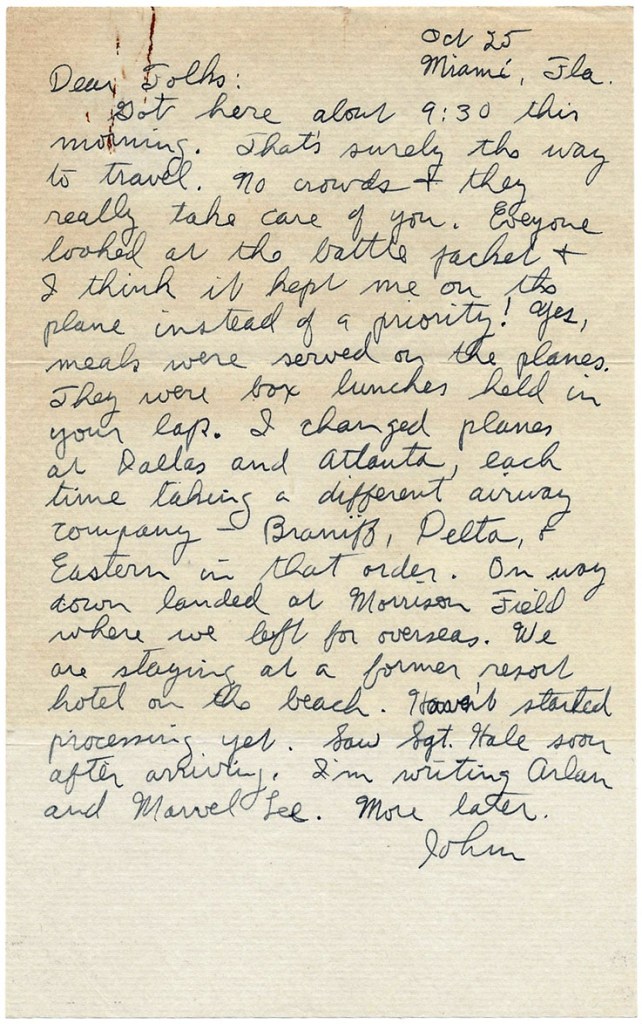 Oct 25
Miami, Fla.
Dear Folks:
Got here about 9:30 this
morning. That's surely the way
to travel. No crowds & they
really take care of you. Eveyone
looked at the battle jacket &
I think it kept me on the
plane instead of a priority! Yes,
meals were served on the planes.
They were box lunches held in
your lap. I changed planes
at Dallas and Atlanta, each
time taking a different airway
company – Braniff, Delta, &
Eastern in that order. On way
down landed at Morrison Field
where we left for overseas. We
are staying at a former resort
hotel on the beach. Haven't started
processing yet. Saw Sgt. Hale soon
after arriving. I'm writing Arlan
and Marvel Lee. More later.
John